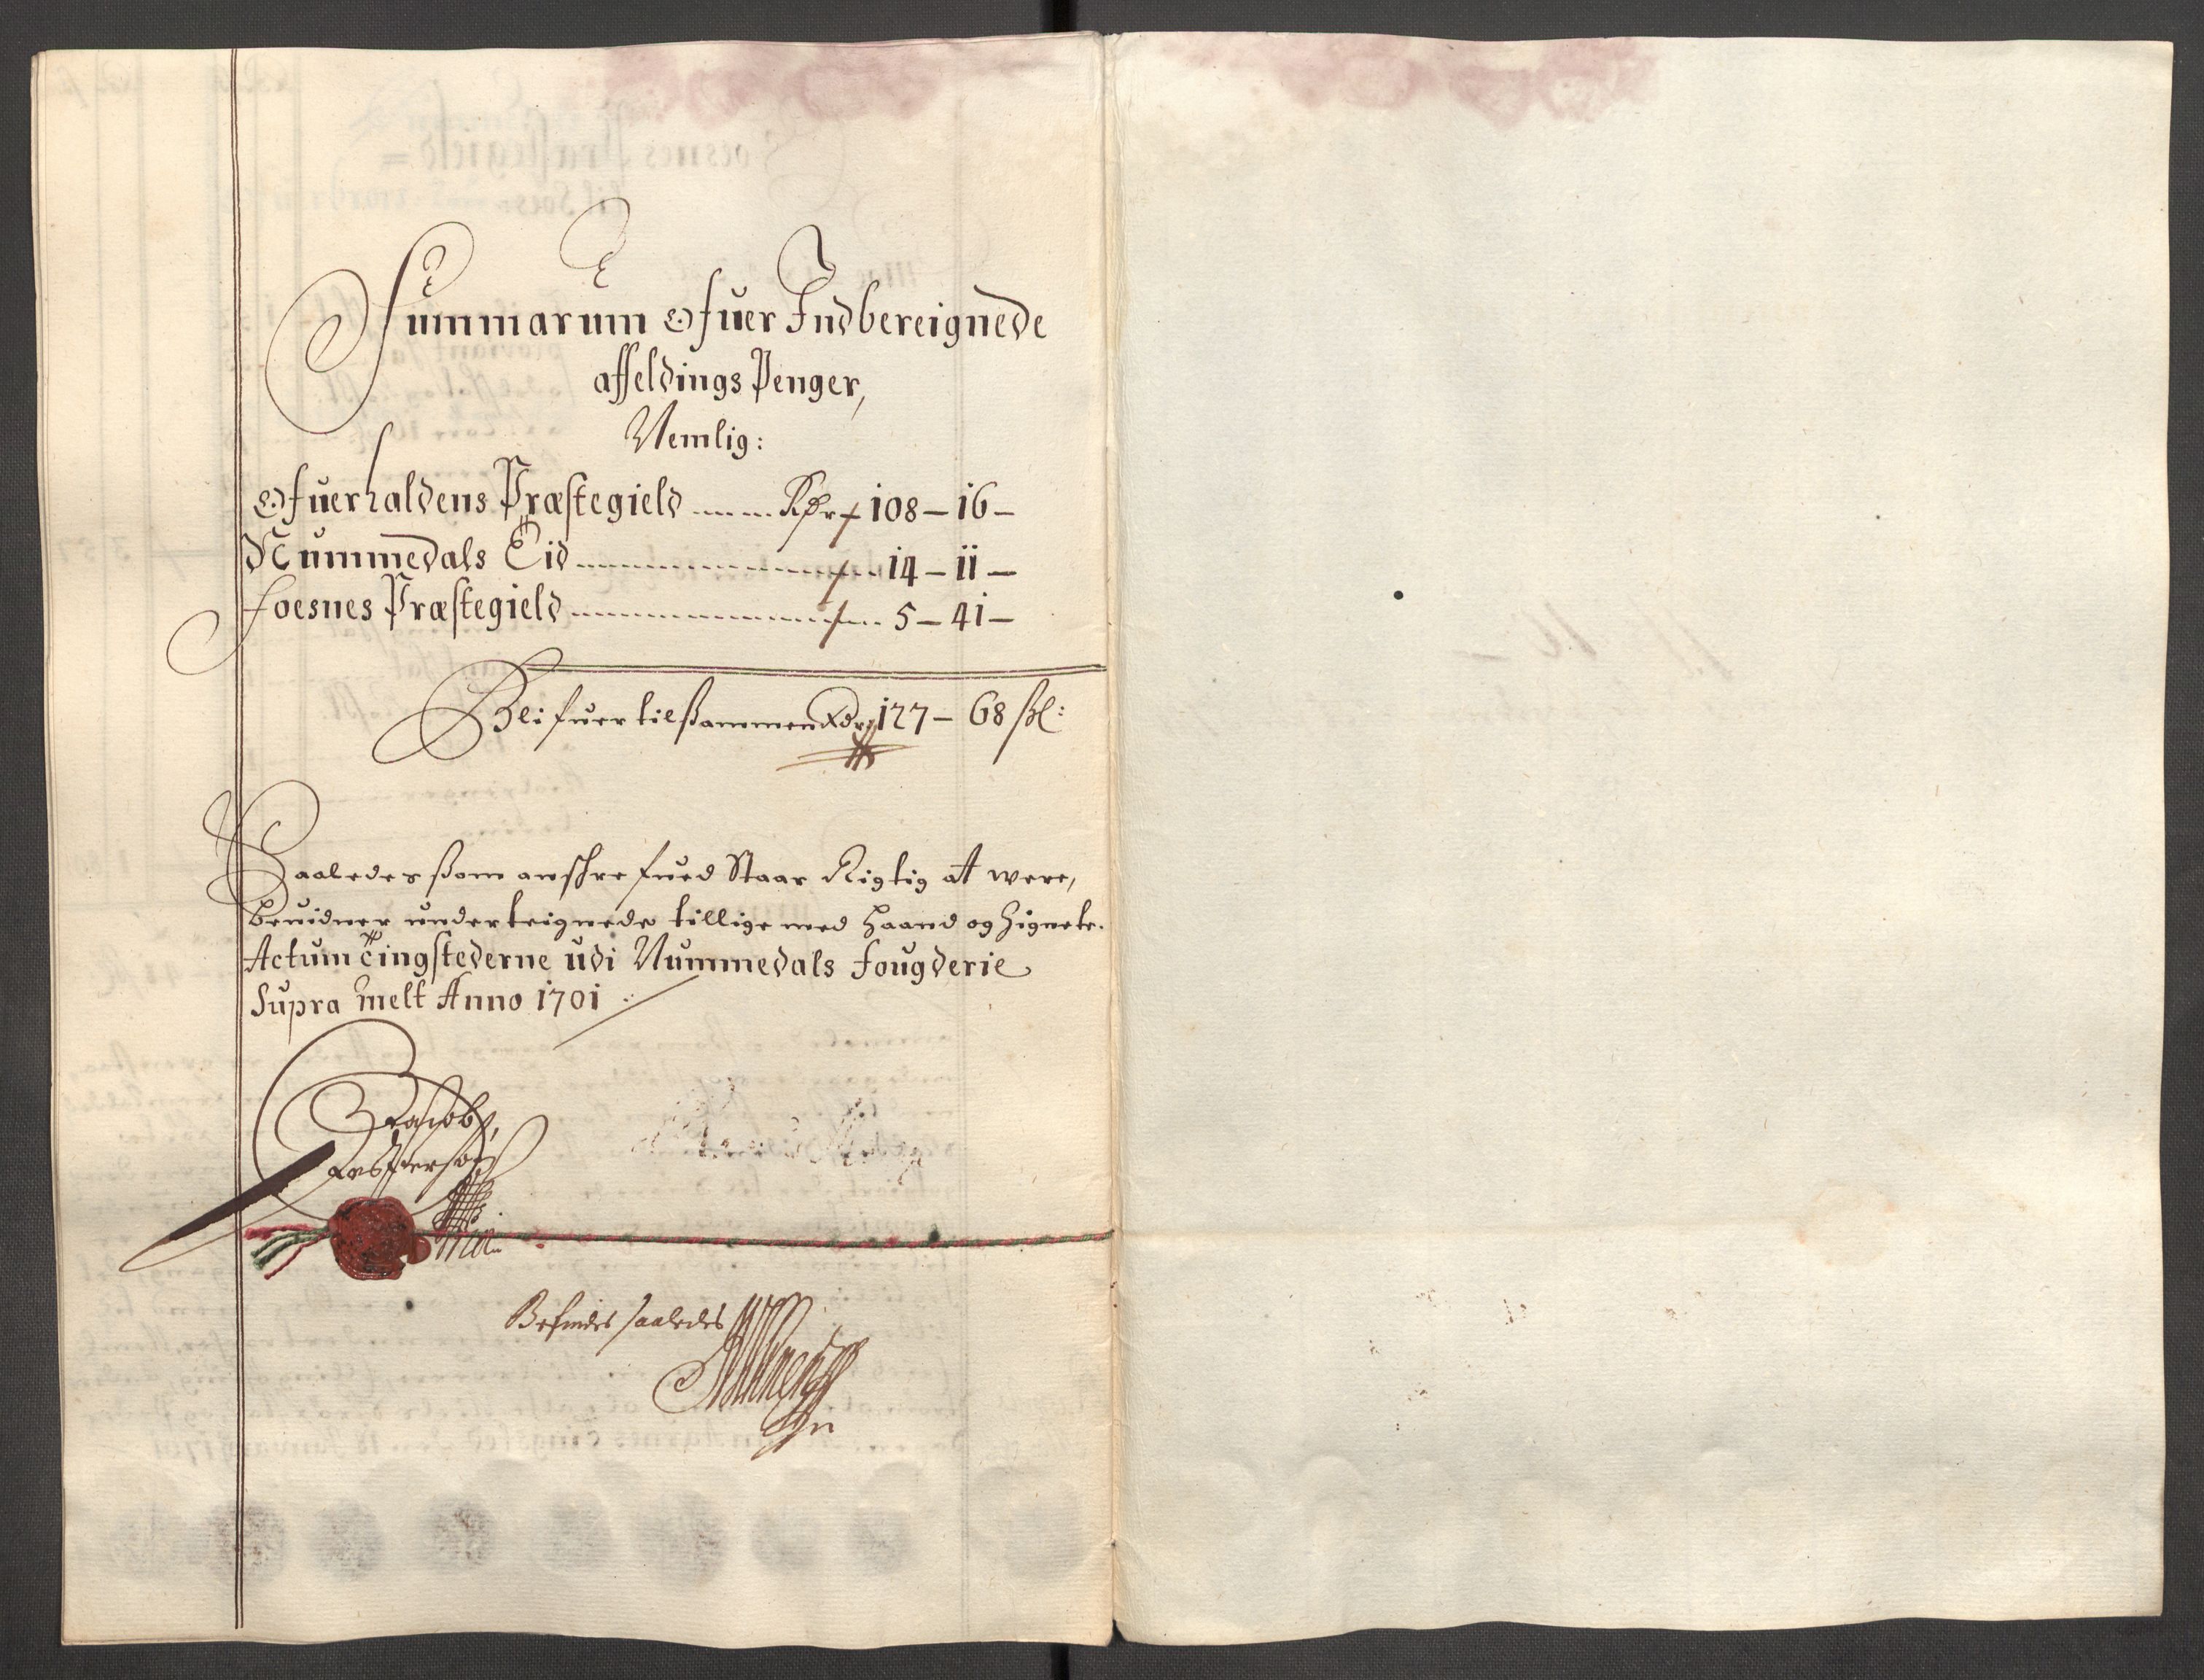 Summarum Ofuer Indbereignede
affeldings Penger,
Nemlig:
Ofuerhaldens Præstegield ...... Rdr 108 – 16 –
Nummedals Eid ............ 14 – ii –
Foesnes Præstegield ............ 5 – 41 –
Blifuer tilßammen Rdr 127 – 68 ßl:
Saaledes ßom anschrefued Staar Rigtig at were,
beuidner underteignede tillige med Haand og Zignete.
Actum Tingstederne udi Nummedals Fougderie
Supra melt Anno 1701
Jacob
Casperson
Befindes saaledes